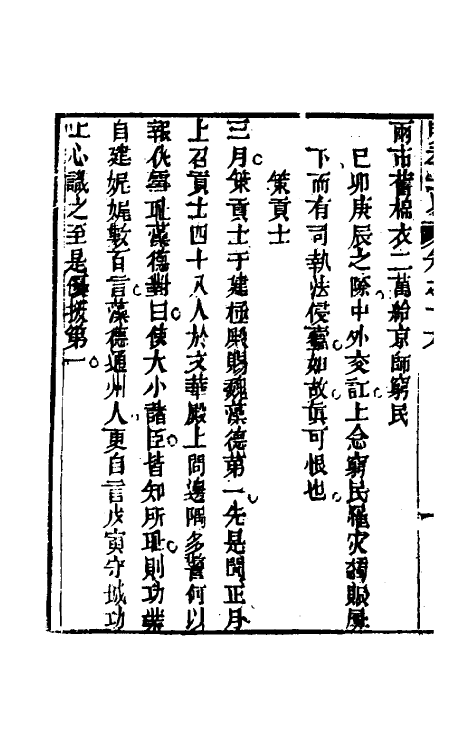 兩市舊棉衣二萬給京師窮民
己卯庚辰之際中外交訌上念窮民罹灾蠲賑屢
下而有司執法侵蠹如故眞可恨也
策貢士
三月策貢士于建極殿賜魏藻德第一先是閏正月
上召貢士四十八人於文華殿上問邊隅多警何以
報仇雪耻藻德對曰使大小諸臣皆知所耻則功業
自建娓娓數百言藻德通州人更自言戊寅守城功
上心識之至是儗拔第一